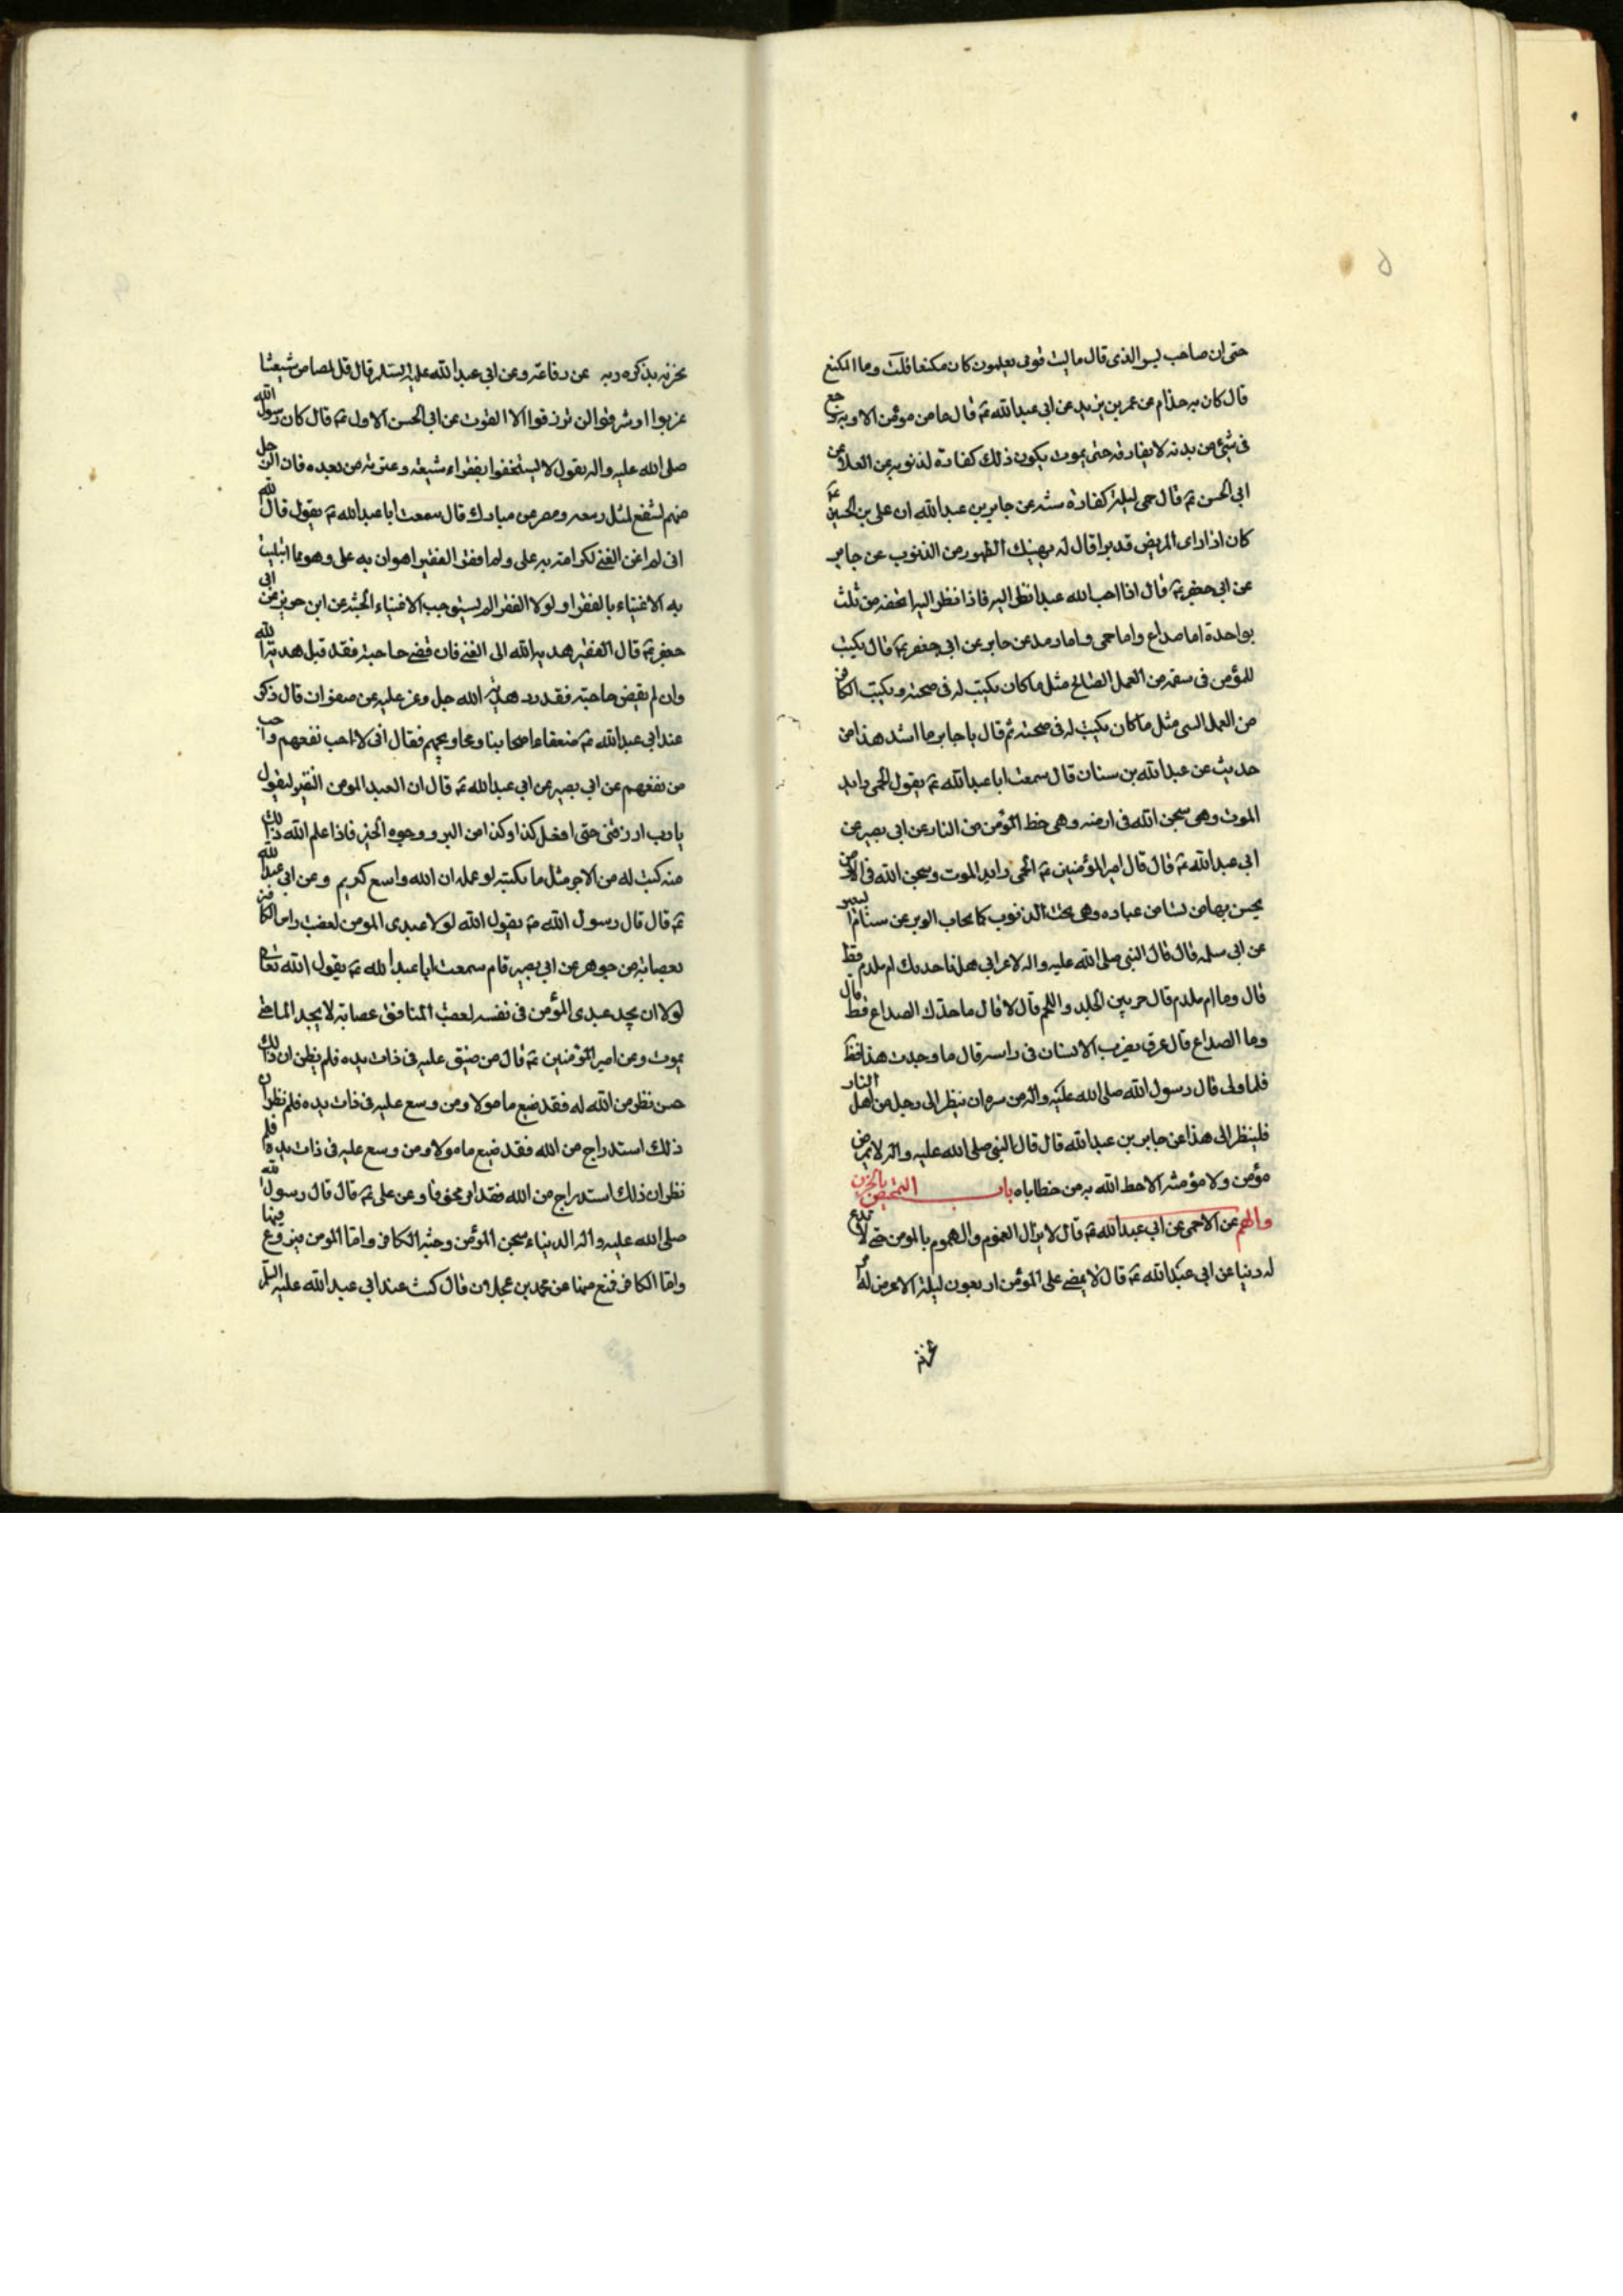 ٥
حتى ان صاحب يس الذى قال ما ليت قومى يعلمون كان مكنعا قلت وما المكنع
قال كان به جذام عن عمر بن يزيد عن ابى عبد الله ع قال ما من مؤمن الا وبه وجع
فى شئ من بدنه لا يفارقه حتى يموت يكون ذلك كفارة لذنوبه عن العلا عن
ابى الحسن ع قال حمى ليلة كفارة سنه عن جابر بن عبد الله ان على بن الحسين ع
كان اذا راى المريض قد برا قال له يهنيك الطهور من الذنوب عن جابر
عن ابى جعفر ع قال اذا احب الله عبدا نظر اليه فاذا نظر اليه اتحفه من ثلث
بواحدة اما صداع واما حمى واما رمد عن جابر عن ابى جعفر ع قال يكتب
للمؤمن فى سقمه من العمل الصالح مثل ما كان يكتب له فى صحته ويكتب الكافر
من العمل السئ مثل ما كان يكتب له فى صحته ثم قال يا جابر ما اشد هذا من
حديث عن عبد الله بن سنان قال سمعت ابا عبد الله ع يقول الحمى رايد
الموت وهى سجن الله فى ارضه وهى حظ المؤمن من النار عن ابى بصير عن
ابى عبد الله ع قال قال امير المؤمنين ع الحمى رايد الموت وسجن الله فى الارض
يحبس بها من يشا من عباده وهى تحت الذنوب كما يحاب الوبر عن سنام البعير
عن ابى سلمه قال قال النبى صلى الله عليه واله لاعرابى هل ناحديك ام ملدم قط
قال وما ام ملدم قال حر بين الجلد واللحم قال لا قال ما حدك الصداع قط قال
وما الصداع قال عرق يضرب الانسان فى راسه قال ما وجدت هذا قط
فلما ولى قال رسول الله صلى الله عليه واله من سره ان ينظر الى رجل من اهل النار
فلينظر الى هذا عن جابر بن عبد الله قال قال النبى صلى الله عليه واله لا يمرض
مؤمن ولا مؤمنه الا حط الله به من خطاياه باب التمحيص بالحزن
والهم عن الاحمى عن ابى عبد الله ع قال لا يزال الغموم والهموم بالمومن حتى لا تدع
له دنيا عن ابى عبد الله ع قال لا يمضى على المؤمن اربعون ليلة الا عرض له امر
يحزنه
يحزنه يذكره ربه عن رفاعه وعن ابى عبد الله عليه السلام قال قل لمصاص شيعتنا
غربوا او شرقوا لن ترزقوا الا القوت عن ابى الحسن الاول ع قال كان رسول الله
صلى الله عليه واله يقول لا يستخفوا بفقراء شيعته وعترته من بعده فان الرجل
منهم ليشفع لمثل ربيعه ومضر عن مبارك قال سمعت ابا عبد الله ع يقول قال الله
انى لم اغن الغنى لكرامة به على ولم افقر الفقير لهوان به على وهو مما ابتليت
به الاغنياء بالفقراء ولولا الفقرا لم يستوجب الاغنياء الجنه عن ابن حريز عن ابى
جعفر ع قال الفقير هدية الله الى الغنى فان قضى حاجته فقد قبل هدية الله
وان لم يقض حاجته فقد رد هدية الله جل وعز عليه عن صفوان قال ذكر
عند ابى عبد الله ع ضعفاء اصحابنا ومحاويجهم فقال انى لاحب نفعهم واحب
من نفعهم عن ابى بصير عن ابى عبد الله ع قال ان العبد المومن الفقير ليقول
يا رب ارزقنى حتى افعل كذا وكذا من البر ووجوه الخير فاذا علم الله ذلك
منه كتب له من الاجر مثل ما يكتبه لو عمله ان الله واسع كريم وعن ابى عبد الله
ع قال قال رسول الله ص يقول الله لولا عبدى المومن لعصبت راس الكافر
بعصابة من جوهر عن ابى بصير قام سمعت ابا عبد الله ع يقول الله تعالى
لولا ان يجد عبدى المؤمن فى نفسه لعصبت المنافق عصابة لا يجد الما حتى
يموت وعن امير المؤمنين ع قال من ضيق عليه فى ذات يده فلم يظن ان ذلك
حسن نظر من الله له فقد ضيع مامولا ومن وسع عليه فى ذات يده فلم نظر ان
ذلك استدراج من الله فقد ضيع مامولا ومن وسع عليه فى ذات يده فلم
نظر ان ذلك استدراج من الله فقد امن مخوفا وعن على ع قال قال رسول الله
صلى الله عليه واله الدنياء سجن المؤمن وجنه الكافر واما المومن فيروع فيها
واما الكافر فمتع فيها عن محمد بن عجلان قال كنت عند ابى عبد الله عليه السلام